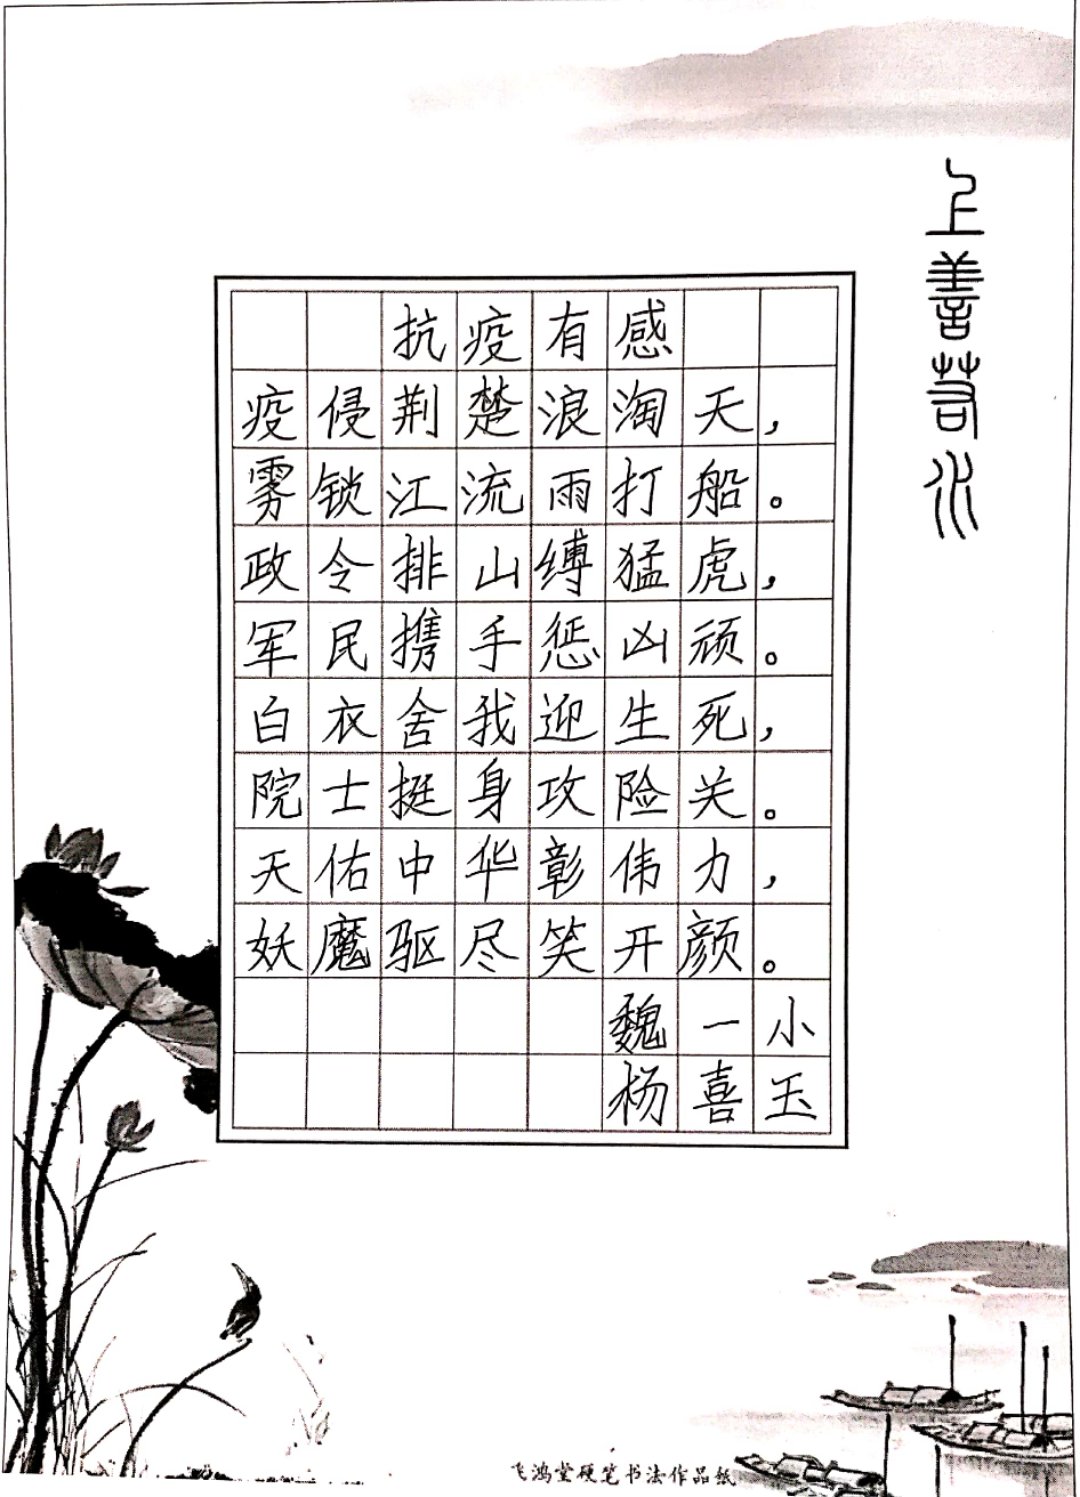 上善若水
抗疫有感
疫侵荆楚浪淘天，
雾锁江流雨打船。
政令排山缚猛虎，
军民携手惩凶顽。
白衣舍我迎生死，
院士挺身攻险关。
天佑中华彰伟力，
妖魔驱尽笑开颜。
魏一小
杨喜玉
飞鸿堂硬笔书法作品纸